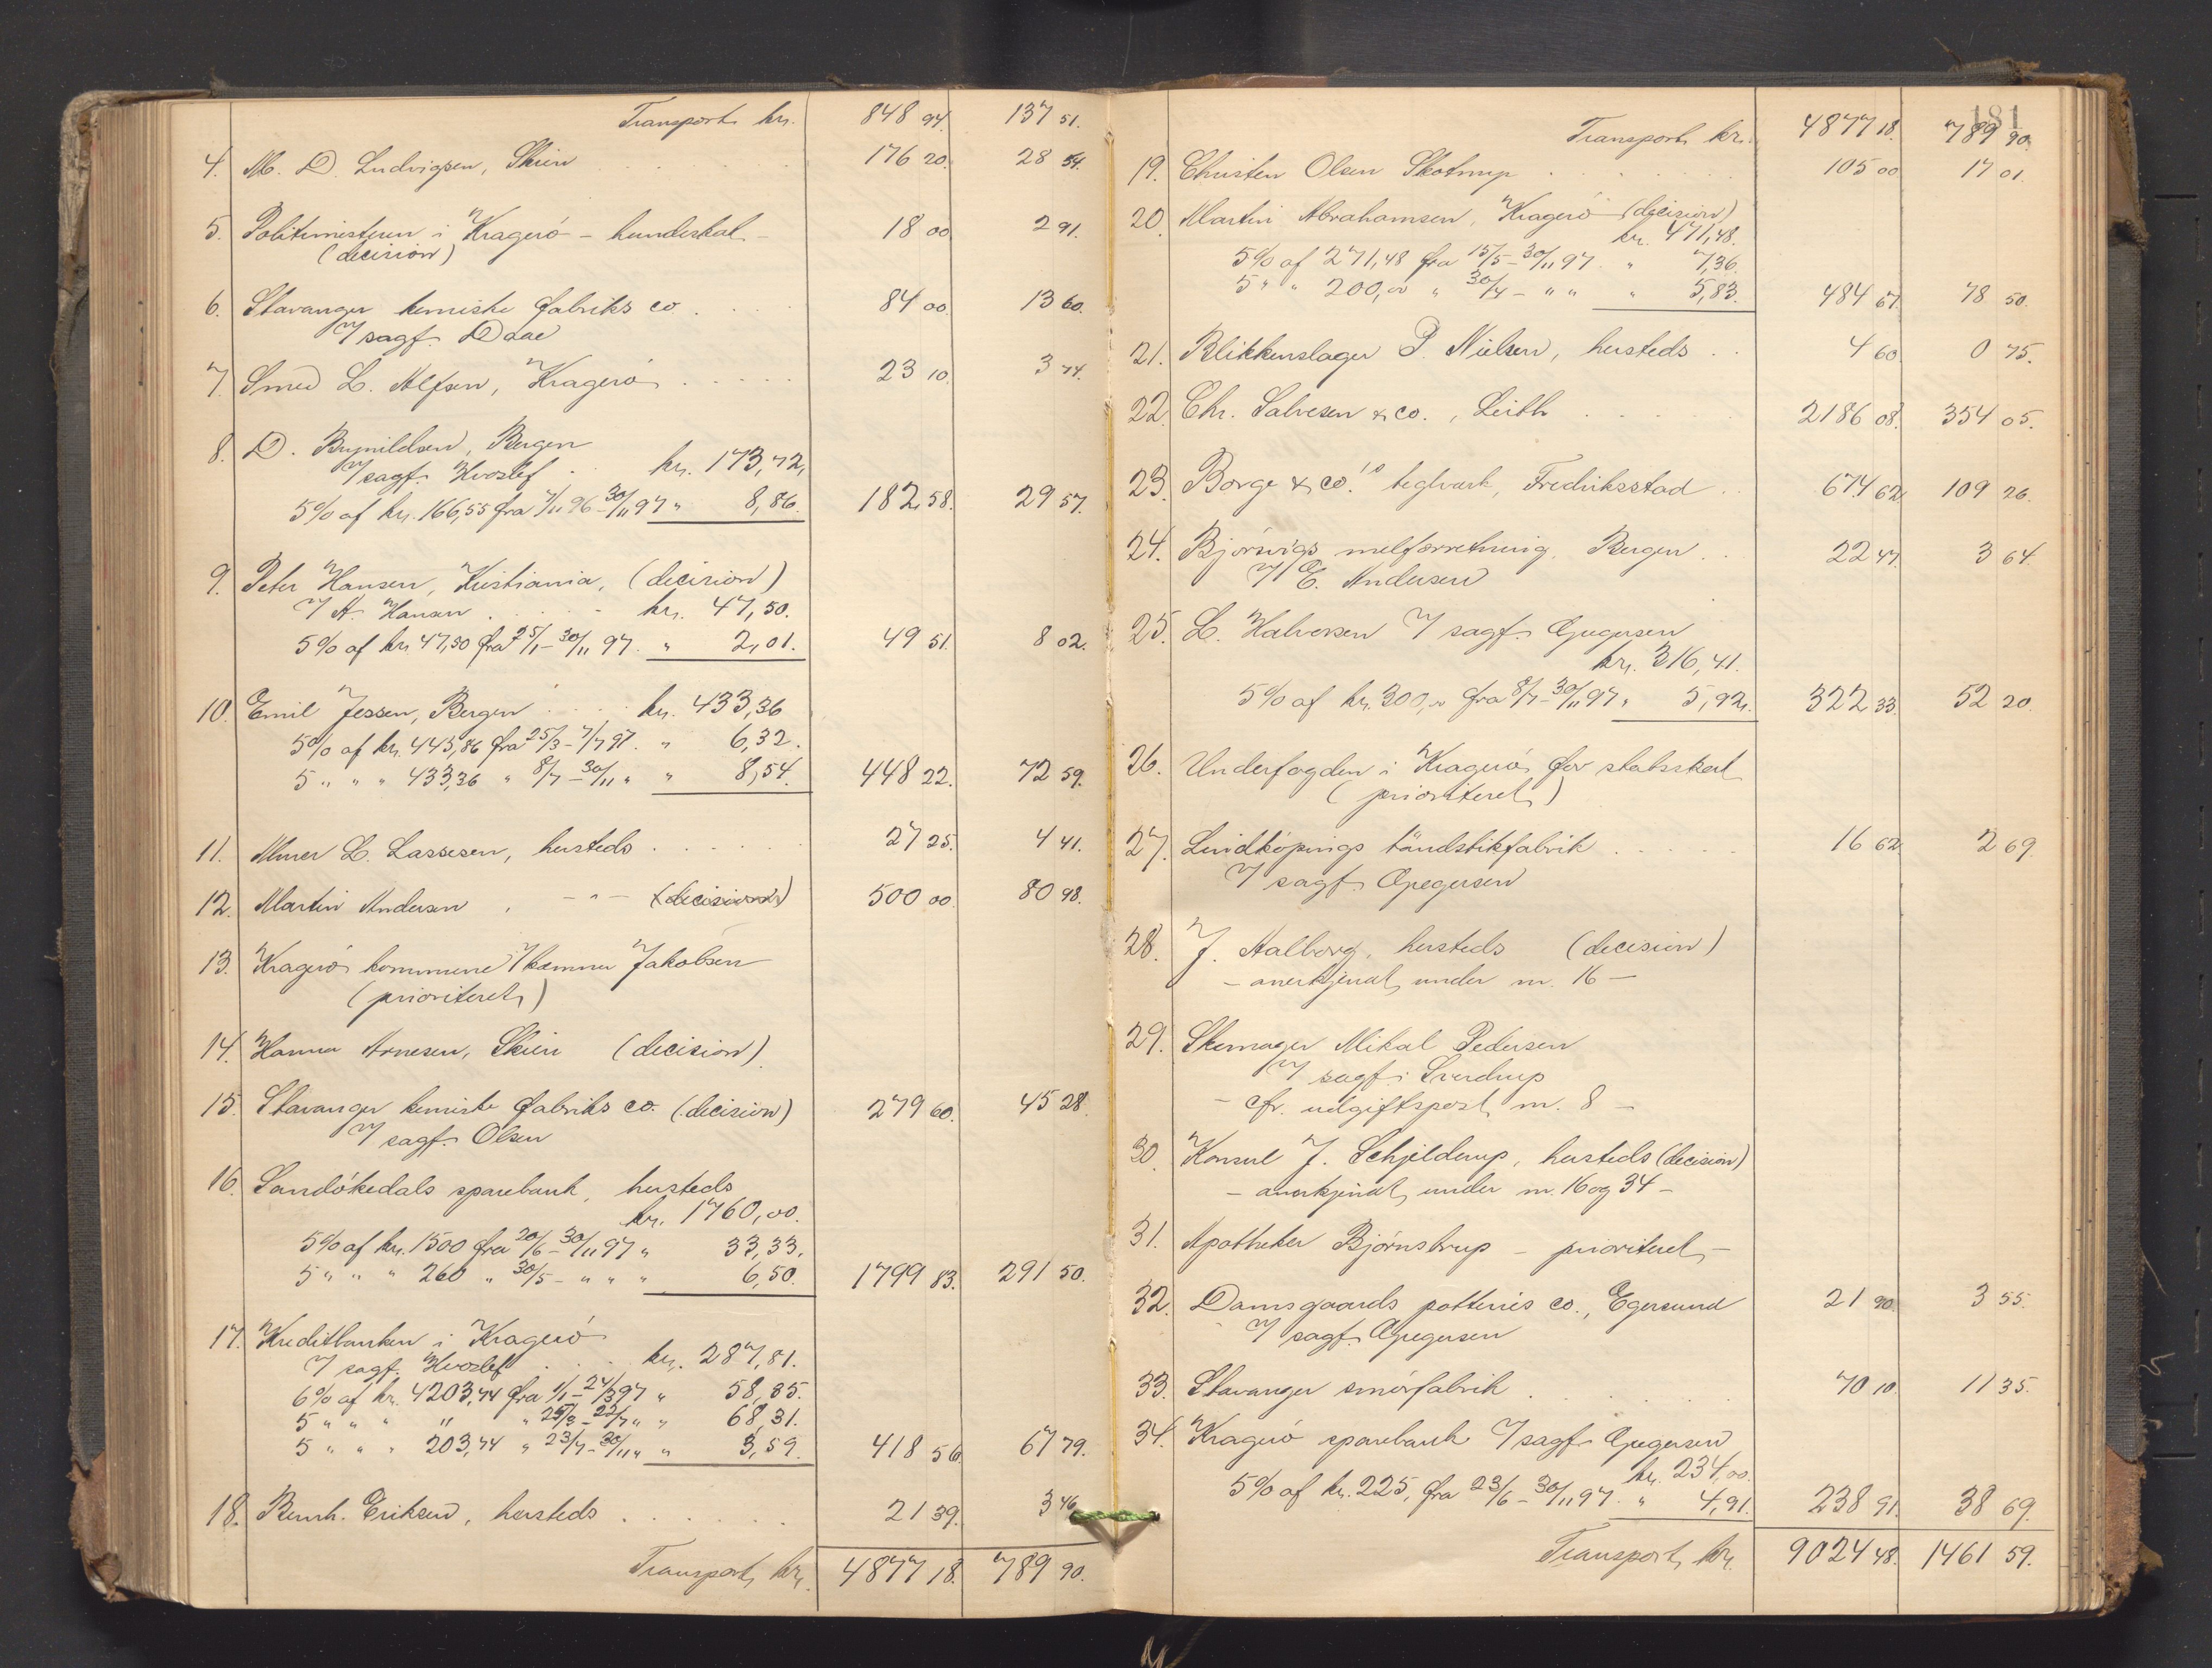 Transport kr. 848 94. 137 51.
4. M. D. Ludvigsen, Skien 176 20. 28 54.
5. Politimesteren i Kragerö – hundeskat – 18 00 2 91.
(decision)
6. Stavanger kemiske fabriks co . . . 84 00. 13 60.
v/ sagf. Daae
7. Smed L. Alfsen, Kragerö . . . . . 23 10. 3 74.
8. D. Brynildsen, Bergen
v/ sagf. Hvoslef . kr. 173,72,
5% af kr. 166,55 fra 7/11 96 – 30/11 97 „ 8,86. 182,58. 29 57.
9. Peter Hansen, Kristiania, (decision)
v/ A. Hansen . . . . kr. 47,50.
5% af kr. 47,50 fra 25/1 – 30/11 97. „ 2,01. 49 51. 8 02.
10. Emil Jessen, Bergen . . . . kr. 433,36
5% af kr. 443,86 fra 25/3 – 7/7 97. „ 6,32.
5 „ „ „ 433,36 „ 8/7 – 30/11 „ „ 8,54. 448 22. 72 59.
11. Murer L. Lassesen, hersteds . . . . . . 27 25. 4 41.
12. Martin Andersen , – „ – (decision) 500 00. 80 98.
13. Kragerö kommune v/ kemner Jakobsen
(prioriteret)
14. Hanna Arnesen, Skien (decision)
15. Stavanger kemiske fabriks co. (decision) 279 60. 45 28.
v/ sagf. Olsen
16. Sandökedals sparebank, hersteds
kr. 1760,00.
5% af kr. 1500 fra 20/6 – 30/11 97 „ 33,33.
5 „ „ „ 260 „ 30/5 – „ „ „ 6,50. 1799 83. 291 50.
17. Kreditbanken i Kragerö
v/ sagf. Hvoslef . . . kr. 287,81.
6% af kr. 4203,74 fra 1/1 – 24/3 97 „ 58,85.
5 „ „ „ „ „ 25/3 – 22/7 „ „ 68,31.
5 „ „ „ 203,74 „ 23/7 – 30/11 „ „ 3,59. 418 56. 67 79.
18. Bernh. Eriksen, hersteds . . . . . . 21 39. 3 46.
Transport kr. 4877 18. 789 90.
181
Transport kr. 4877 18. 789 90.
19. Christen Olsen Skotrup . . . . . . . 105 00 17 01.
20. Martin Abrahamsen, Kragerö (decision)
kr. 471,48.
5% af 271,48 fra 15/5 – 30/11 97. „ 7,36.
5 „ „ 200,00 „ 30/4 – „ „ „ 5,83. 484 67. 78 50.
21. Blikkenslager P. Nielsen, hersteds . . 4 60. 0 75.
22. Chr. Salvesen & co., Leith . . . . . 2186 08. 354 05.
23. Borge & co.'s teglværk, Fredriksstad . . 674 62. 109 26.
24. Björsvigs melforretning, Bergen . . 22 47. 3 64.
v/ E. Andersen
25. L. Halvorsen v/ sagf. Gregersen
kr. 316,41.
5% af kr. 300,00 fra 8/7 – 30/11 97 „ 5,92. 322 33. 52 20.
26. Underfogden i Kragerö for statsskat
(prioriteret)
27. Lindköpings tändstikfabrik . . . . . 16 62 2 69.
v/ sagf. Gregersen
28. J. Aalborg, hersteds (decision)
– anerkjendt under nr. 16 –
29. Skomager Mikal Pedersen
v/ sagf. Sverdrup
– cfr. udgiftspost nr. 8 –
30. Konsul J. Schjelderup, hersteds (decision)
– anerkjendt under nr. 16 og 34 –
31. Apotheker Björnstrup – prioriteret –
32. Damsgaards potteries co., Egersund 21 90. 3 55.
v/ sagf. Gregersen
33. Stavanger smörfabrik . . . . . 70 10. 11 35.
34. Kragerö sparebank v/ sagf. Gregersen
kr. 234,00.
5% af kr. 225, fra 23/6 – 30/11 97. „ 4,91. 238 91. 38 69.
Transport kr. 9024 48. 1461 59.